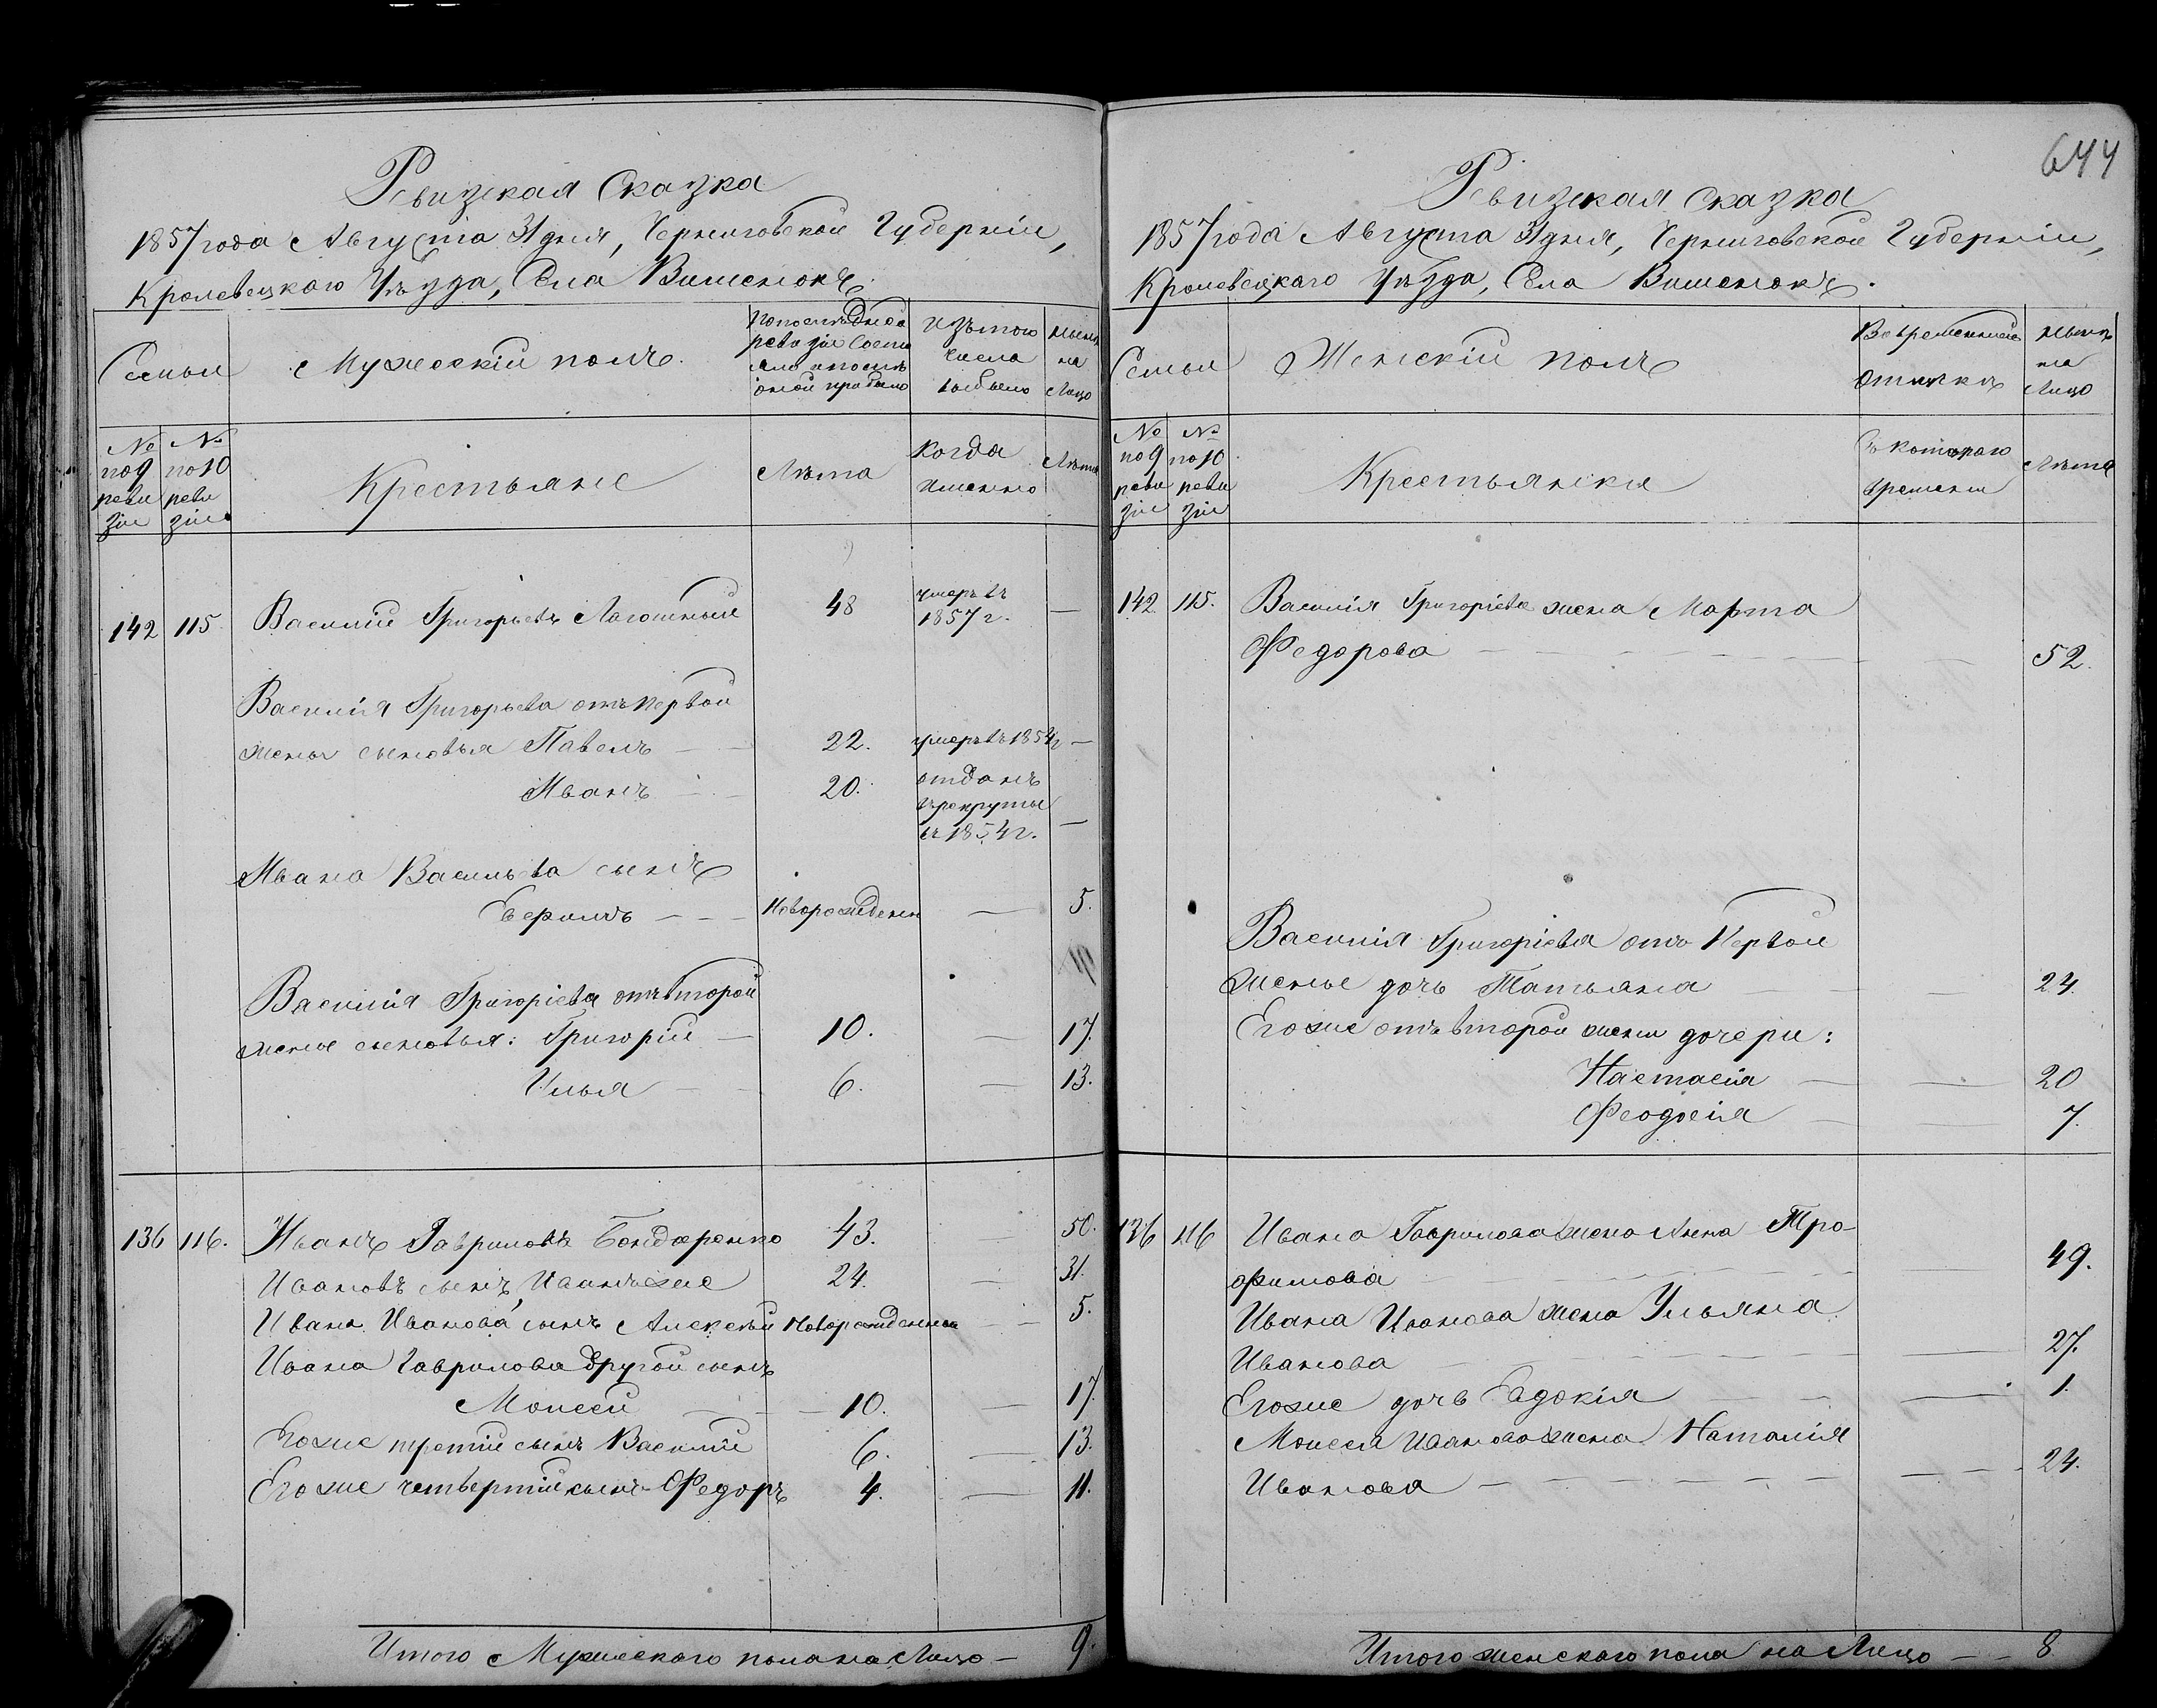 Ревизская Сказка
1857 года Августа 31 дня, Черниговской Губерніи,
Кролевецкаго Уѣзда, Села Вишенокъ.
Семьи
Мужескій полъ.
По последней ревизіи состояло и после оной прибыло
Изъ того числа выбыло
Ныне на Лицо
№ по 9 ревизіи
№ по 10 ревизіи
Крестьяне
Лѣта
Когда именно
Лѣта
142 115 Василий Григорьевъ 48 умеръ въ 1857 г. —
Василія Григорьева отъ первой
жены сыновья Павелъ — 22. умеръ въ 1854 г —
Иванъ — 20. отданъ
в рекруты
въ 1854 г. —
Ивана Васильева сынъ
— — Новорожденн — 5.
Василія Григоріева отъ второй
жены сыновья: Григорій — 10. — 17.
Илья — — 6. — 13.
136 116. Иванъ Гавриловъ Бондаренко 43. — 50.
Ивановъ сынъ, Иванъ же 24. — 31.
Ивана Иванова сынъ Алексѣй Новорожденный — 5.
Ивана Гаврилова другой сынъ
Моисей — 10. — 17.
Его же третій сынъ Василій 6. — 13.
Его же четвертый сынъ Федоръ 4. — 11.
Итого Мужескаго пола на Лицо — 9.
644
Ревизская Сказка
1857 года Августа 31 дня, Черниговской Губерніи,
Кролевецкаго Уѣзда, Села Вишенокъ.
Семьи
Женскій полъ
Во временной отлучкѣ
Нынѣ на Лицо
№ по 9 ревизіи
№ по 10 ревизіи
Крестьянки
Съ котораго времени
Лѣта
142 115. Василія Григоріева жена Марта
Федорова — — — 52.
Василія Григоріева отъ Первой
жены дочь Татьяна — — 24.
Его же отъ второй жены дочери:
Настасія — — 20
Феодосія — — 7.
136 116 Ивана Гаврилова жена Анна Тро-
фимова — — 49.
Ивана Иванова жена Ульяна
Иванова — — 27.
Его же дочь Евдокія — — 1.
Моисея Иванова жена Наталія
Иванова — — — 24.
Итого женскаго пола на Лицо — — 8